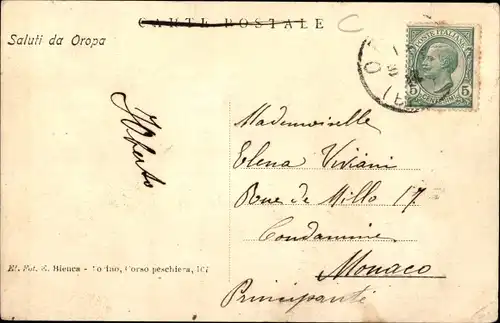 CARTE POSTALE
C
Saluti da Oropa
POSTE ITALIANE
5 5
CENTESIMI
Mademoiselle
Elena Viviani
Rue de Millo 17
Condamine
Monaco
Principauté
Ed. Fot. E. Bienca - Torino, Corso peschiera, 167